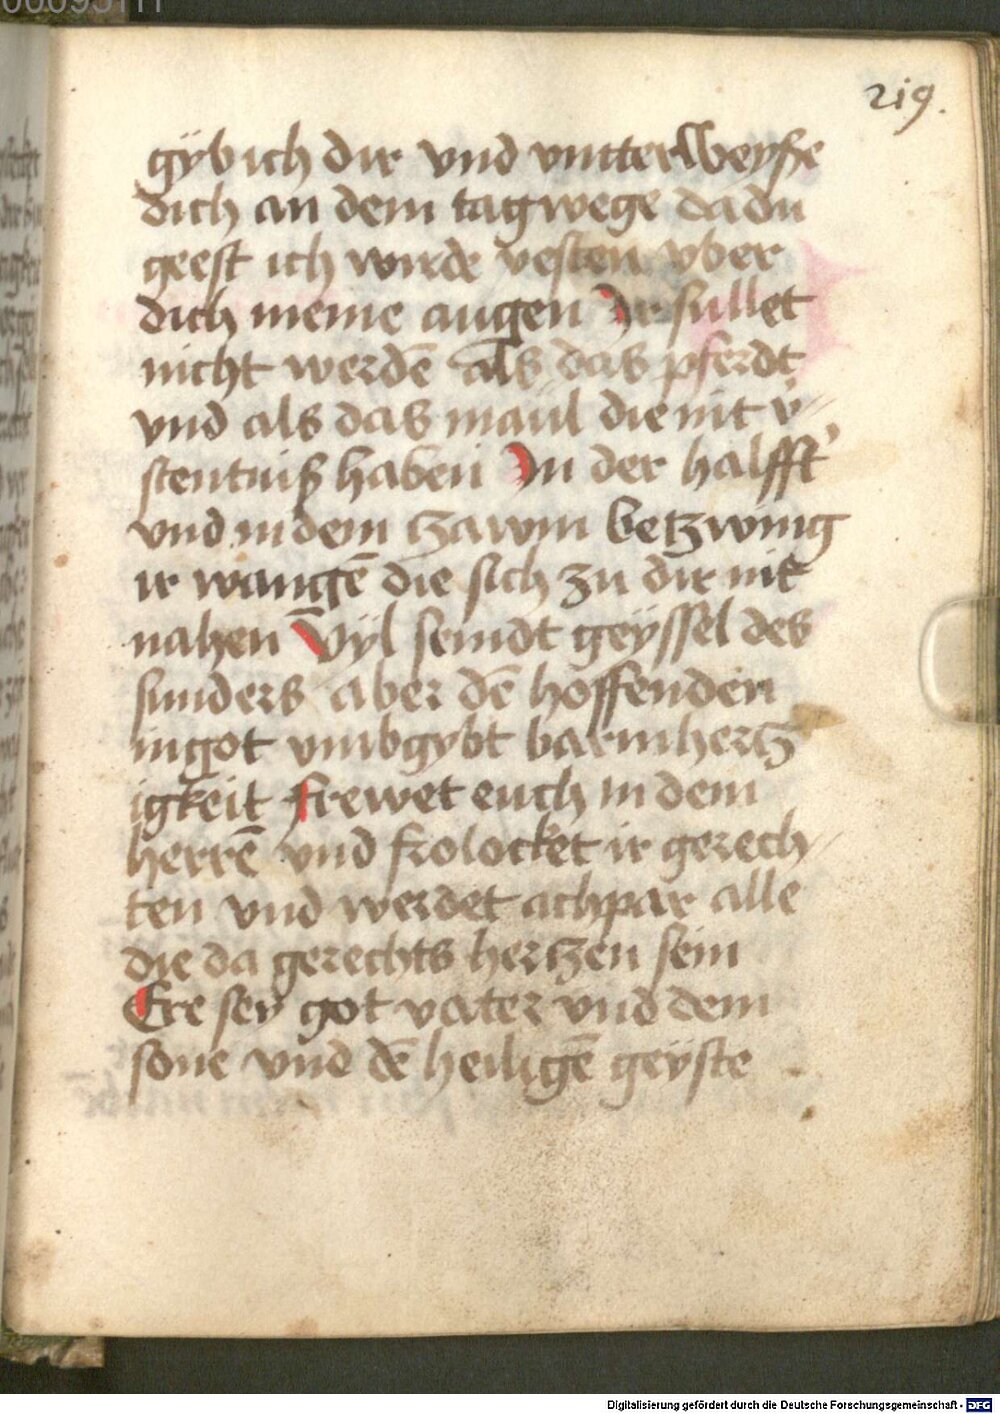 219.
gÿb ich dir vnd vntterweÿße
dich an dem tag wege da du
geest ich wirde vesten vber
dich meine augen Ir sullet
nicht werdē als das pferdt
vnd als das maül die nit v̾-
stentniß haben In der halfft̾
vnd in dem tzawm betzwing
ir wangē die sich zu dir nit
nahen Vÿl seindt geÿssel des
sunders aber dē hoffenden
in got vmbgÿbt barmhertz
igkeit Frewet euch in dem
herrē vnd frolocket ir gerech-
ten vnd werdet achpar alle
die da gerechts hertzen sein
Ere seÿ got vater vnd dem
sone vnd dē heiligē geÿste
Digitalisierung gefördert durch die Deutsche Forschungsgemeinschaft - DFG